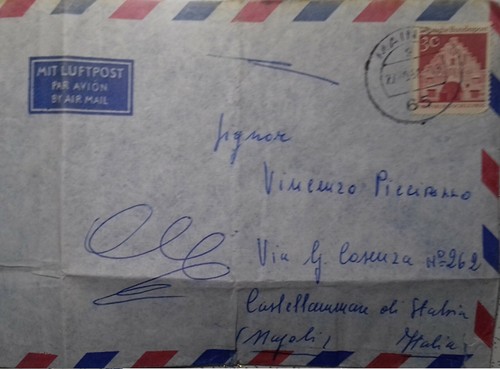 MIT LUFTPOST
PAR AVION
BY AIR MAIL
MAIN
65
30
Deutsche Bundespost
Signor
Vincenzo
Via G. Cosenza N° 262
Castellammare di Stabia
(Napoli) Italia